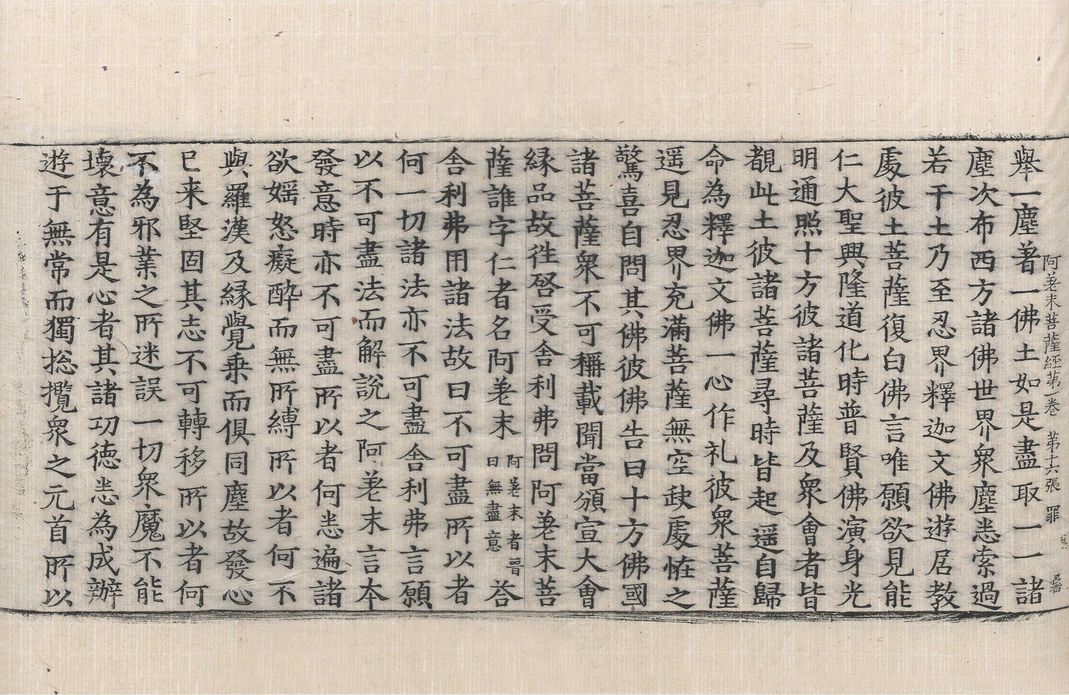 阿差末菩薩經第一卷 第十六張 罪
擧一塵著一佛土如是盡取一一諸
塵次布西方諸佛世界衆塵悉索過
若干土乃至忍界釋迦文佛遊居教
處彼土菩薩復白佛言唯願欲見能
仁大聖興隆道化時普賢佛演身光
明通照十方彼諸菩薩及衆會者皆
覩此土彼諸菩薩尋時皆起遥自歸
命為釋迦文佛一心作礼彼衆菩薩
遥見忍界充滿菩薩無空缺處恠之
驚喜自問其佛彼佛告曰十方佛國
諸菩薩衆不可稱載聞當頒宣大會
縁品故徃啓受舍利弗問阿差末菩
薩誰字仁者名阿差末 阿差末者晉曰無盡意 荅
舍利弗用諸法故曰不可盡所以者
何一切諸法亦不可盡舍利弗言願
以不可盡法而解說之阿差末言本
發意時亦不可盡所以者何悉遍諸
欲婬怒癡酔而無所縛所以者何不
與羅漢及縁覺乗而俱同塵故發心
已来堅固其志不可轉移所以者何
不為邪業之所迷誤一切衆魔不能
壞意有是心者其諸功徳悉為成辦
遊于無常而獨捴攬衆之元首所以